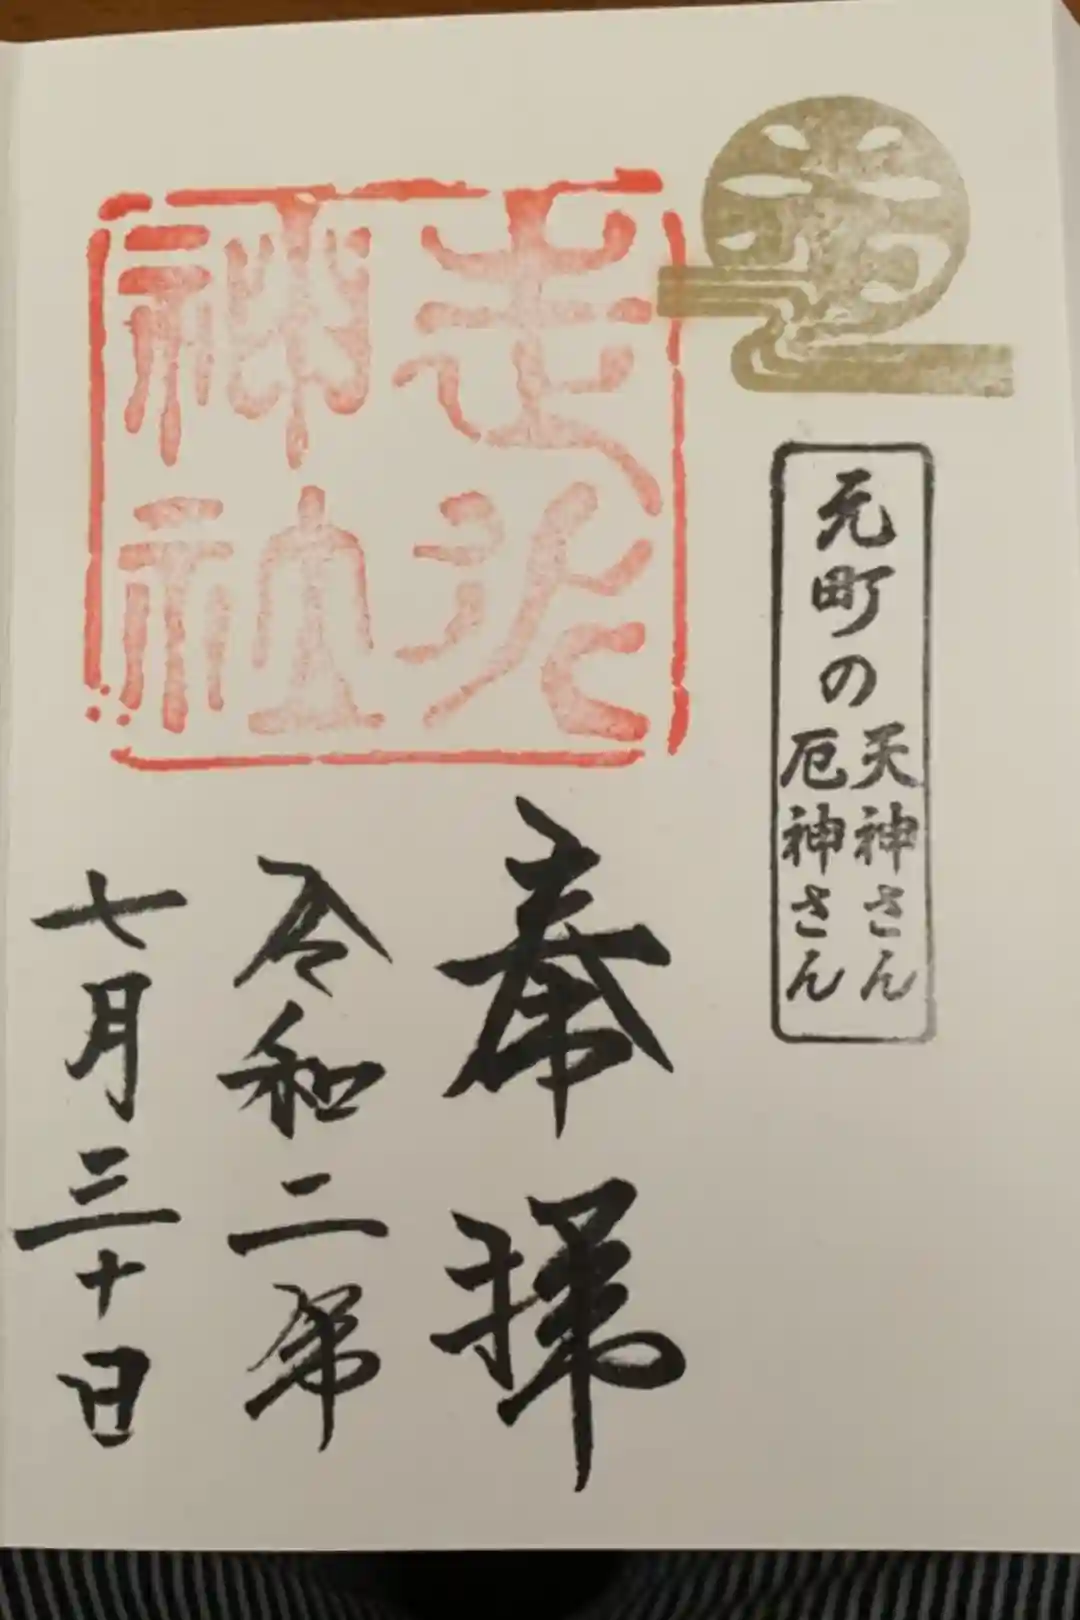 元町の
天神さん
厄神さん
走水
神社
奉拝
令和二年
七月三十日